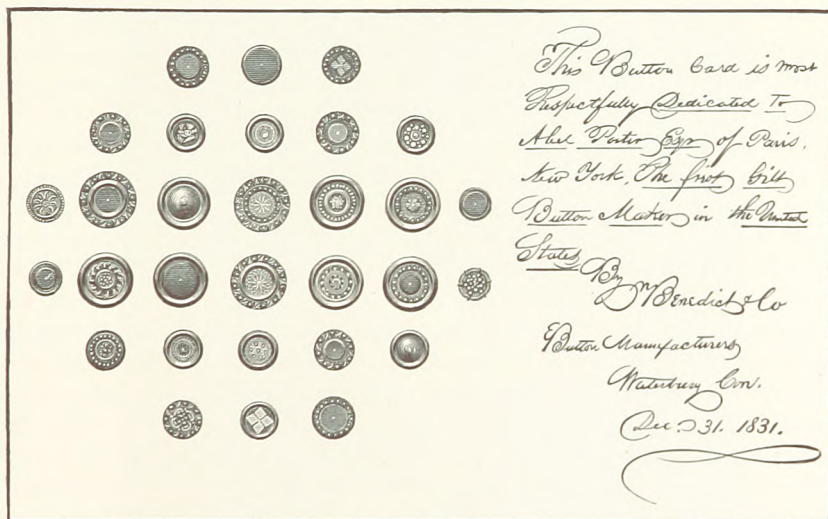 This Button Card is most
Respectfully Dedicated To
Abel Porter Esqr of Paris,
New York, The first Gilt
Button Maker in the United
States
By Benedict & Co
Button Manufacturers
Waterbury Con.
Dec. 31. 1831.